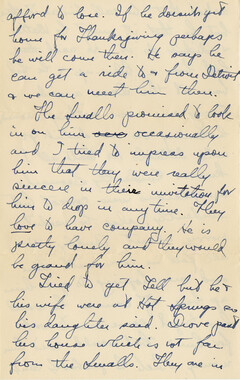 afford to lose. If he doesn't get
home for Thanksgiving perhaps
he will come then. He says he
can get a ride to & from Detroit
& we can meet him then.
The Smalls promised to look
in on him occasionally
and I tried to impress upon
him that they were really
sincere in their invitation for
him to drop in any time. They
love to have company. He is
pretty lonely and they would
be grand for him.
Tried to get Sell but he &
his wife were at Hot Springs so
his daughter said. Drove past
his house which is not far
from the Smalls. They are in